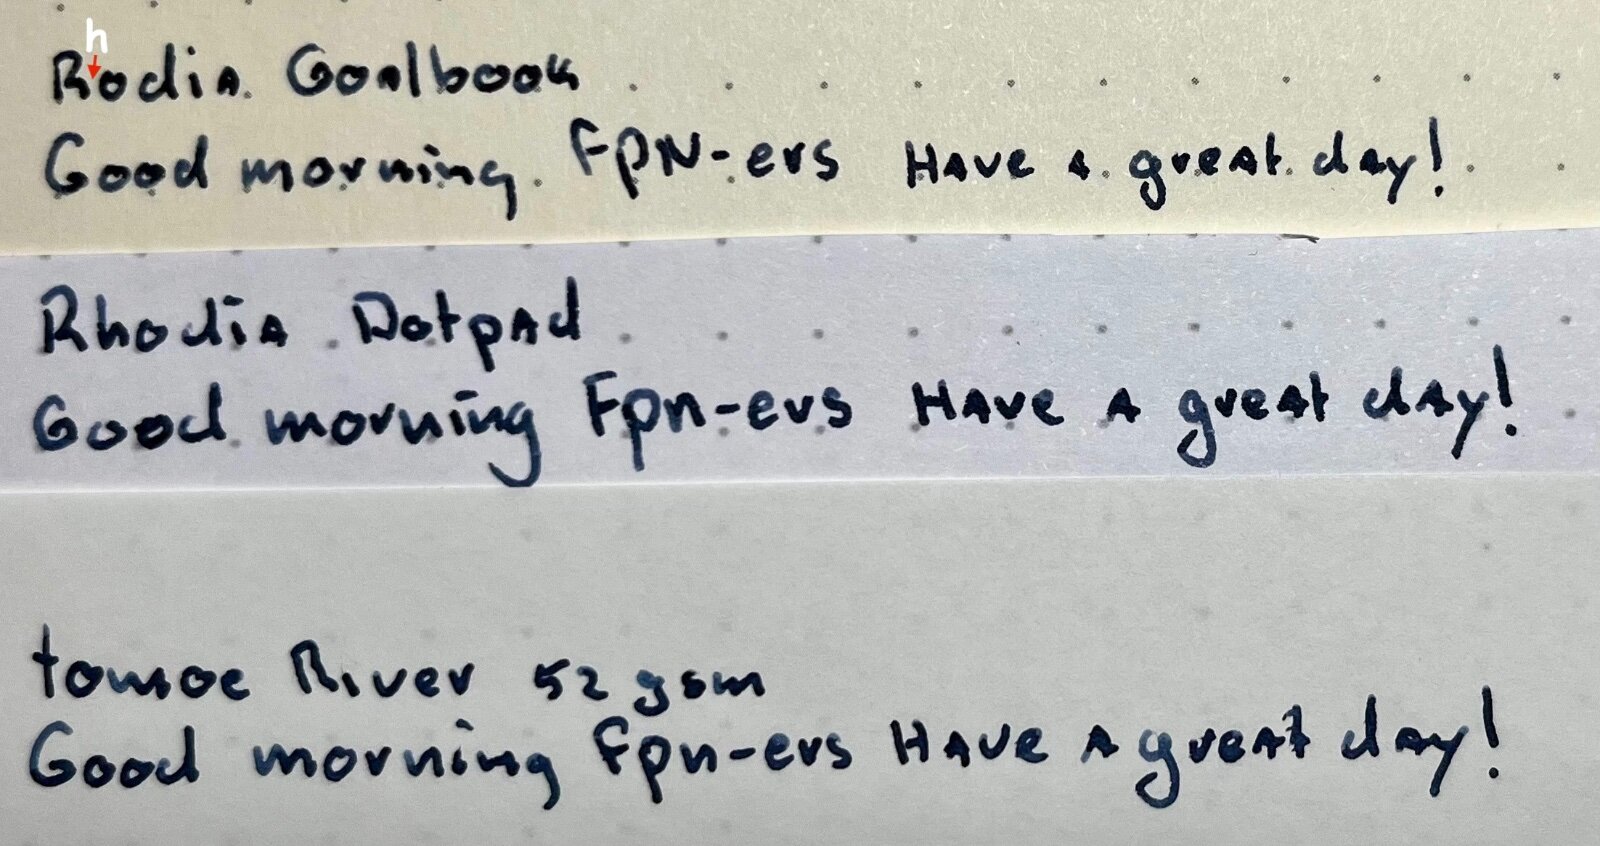 h
Rodia Goalbook
Good morning FPN-ers Have a great day!
Rhodia Dotpad
Good morning Fpn-ers Have a great day!
tomoe River 52 gsm
Good morning Fpn-ers Have a great day!